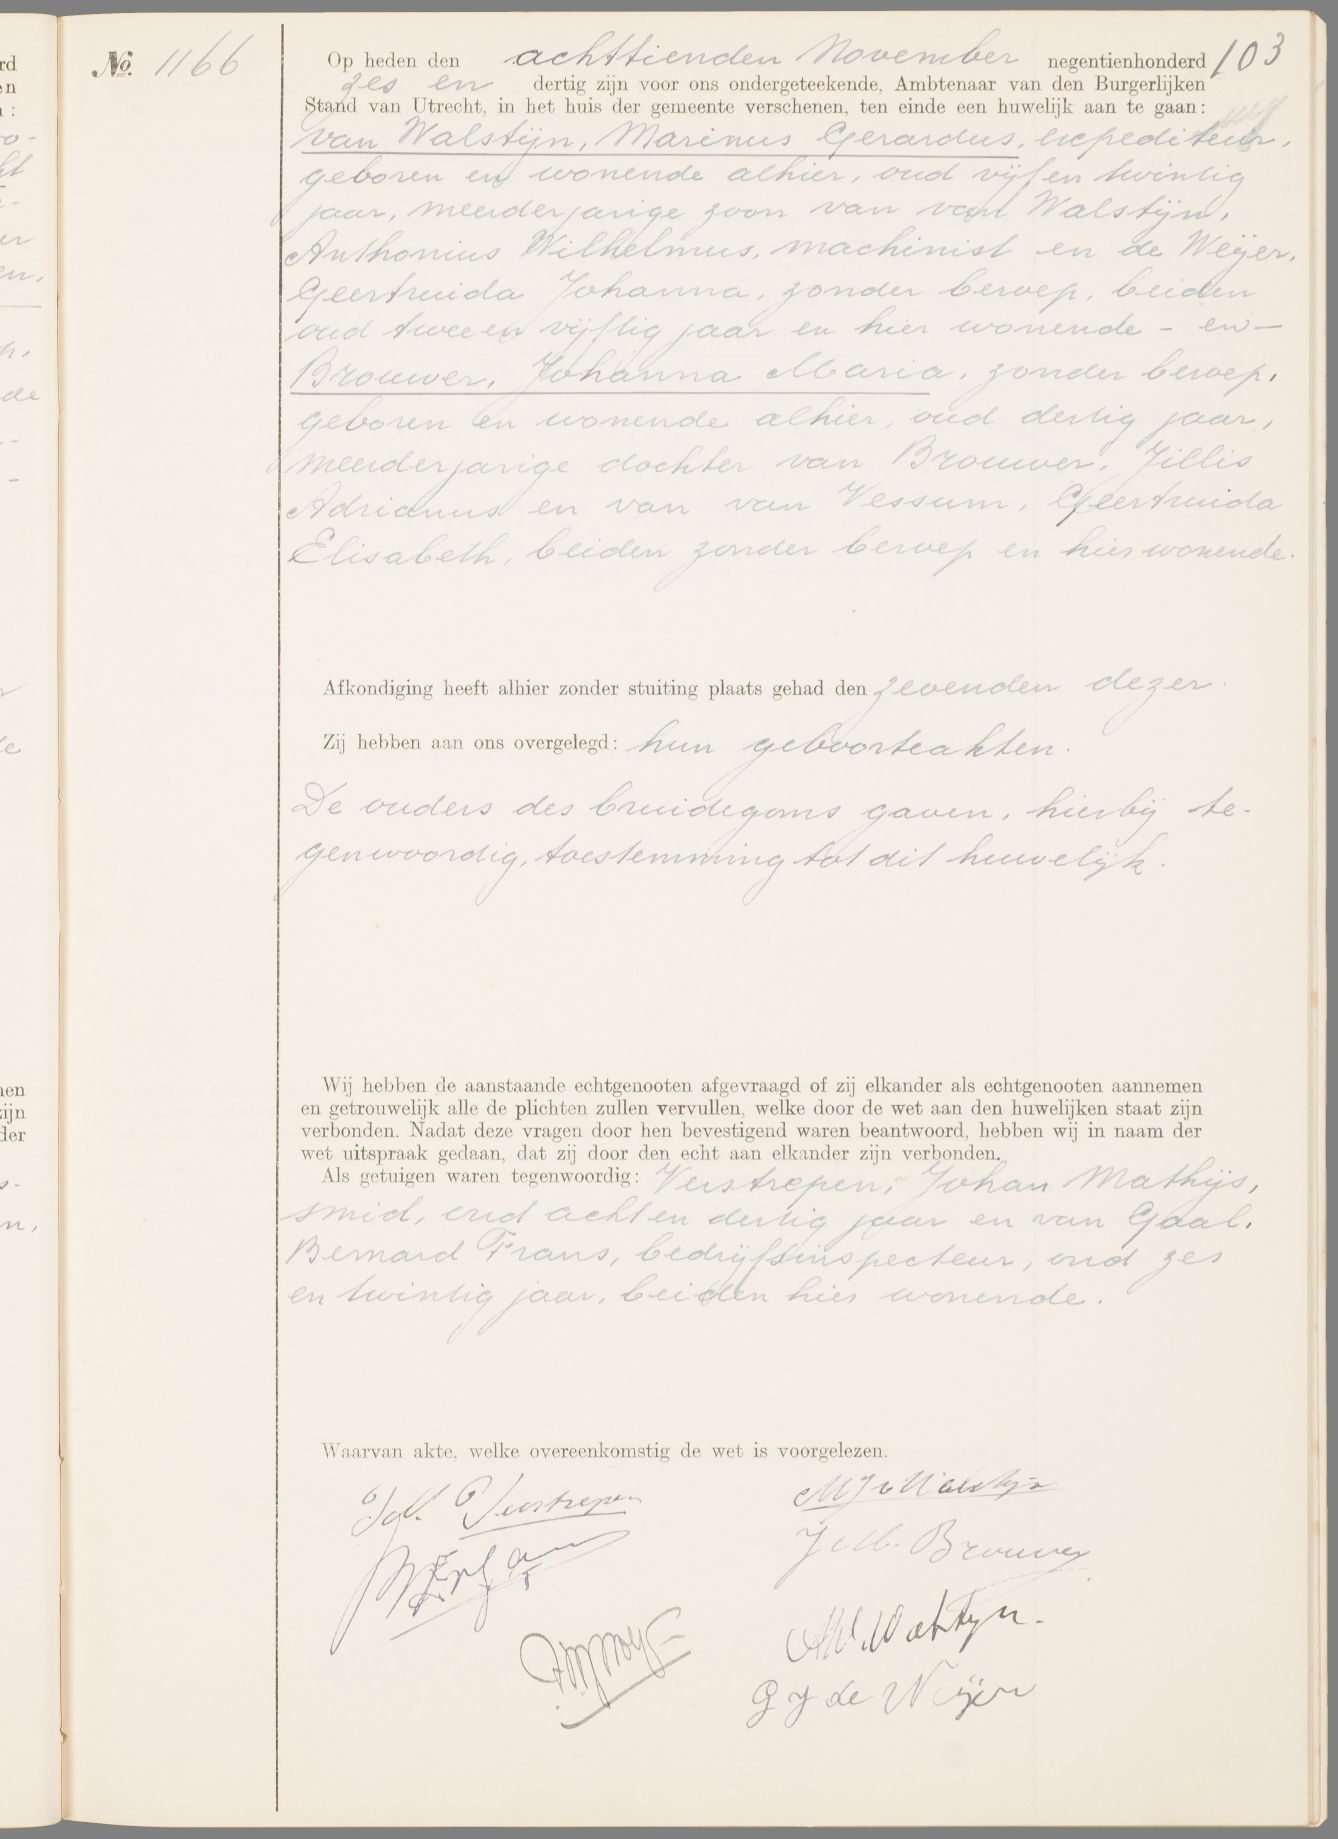 №. 1166
103
Op heden den achttienden November negentienhonderd
zes en dertig zijn voor ons ondergeteekende, Ambtenaar van den Burgerlijken
Stand van Utrecht, in het huis der gemeente verschenen, ten einde een huwelijk aan te gaan:
van Walstijn, Marinus Gerardus, expediteur,
geboren en wonende alhier, oud vijf en twintig
jaar, meerderjarige zoon van van Walstijn,
Anthonius Wilhelmus, machinist en de Weijer,
Geertruida Johanna, zonder beroep, beiden
oud twee en vijftig jaar en hier wonende - en -
Brouwer, Johanna Maria, zonder beroep,
geboren en wonende alhier, oud dertig jaar,
meerderjarige dochter van Brouwer, Jillis
Adrianus en van van Vessum, Geertruida
Elisabeth, beiden zonder beroep en hier wonende.
Afkondiging heeft alhier zonder stuiting plaats gehad den zevenden dezer.
Zij hebben aan ons overgelegd: hun geboorteakten.
De ouders des bruidegoms gaven, hierbij te-
genwoordig, toestemming tot dit huwelijk.
Wij hebben de aanstaande echtgenooten afgevraagd of zij elkander als echtgenooten aannemen
en getrouwelijk alle de plichten zullen vervullen, welke door de wet aan den huwelijken staat zijn
verbonden. Nadat deze vragen door hen bevestigend waren beantwoord, hebben wij in naam der
wet uitspraak gedaan, dat zij door den echt aan elkander zijn verbonden.
Als getuigen waren tegenwoordig: Verstrepen, Johan Mathijs,
smid, oud acht en dertig jaar en van Gaal,
Bernard Frans, bedrijfsinspecteur, oud zes
en twintig jaar, beiden hier wonende.
Waarvan akte, welke overeenkomstig de wet is voorgelezen.
Verstrepen
J M. Brouwer
A.W. v. Walstijn.
G J de Weijer